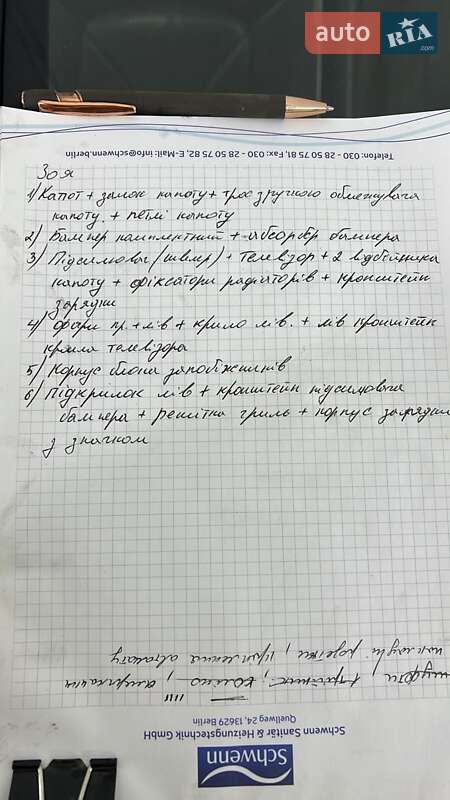 auto RIA .com
Telefon: 030 - 28 50 75 81, Fax: 030 - 28 50 75 82, E-Mail: info@schwenn.berlin
Зоя
1) Капот + замок капоту + трос з ручкою обмежувача
капоту + петлі капоту
2) Бампер комплектний + абсорбер бампера
3) Підсилювач (швелер) + телевізор + 2 відбійника
капоту + фіксатори радіаторів + кронштейн
зарядки
4) Фари пр. + лів + крило лів. + лів кронштейн
крила телевізора
5) Корпус блока запобіжників
6) Підкрилок лів + кронштейн підсилювача
бампера + решітка гриль + корпус зарядки
з значком
муфти, трійник, коліно,
колектуч. розетки, кріплення автомату
Schwenn Sanitär & Heizungstechnik GmbH
Quellweg 24, 13629 Berlin
Schwenn